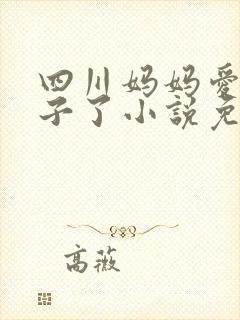 四川妈妈爱
子了小説免
高薇